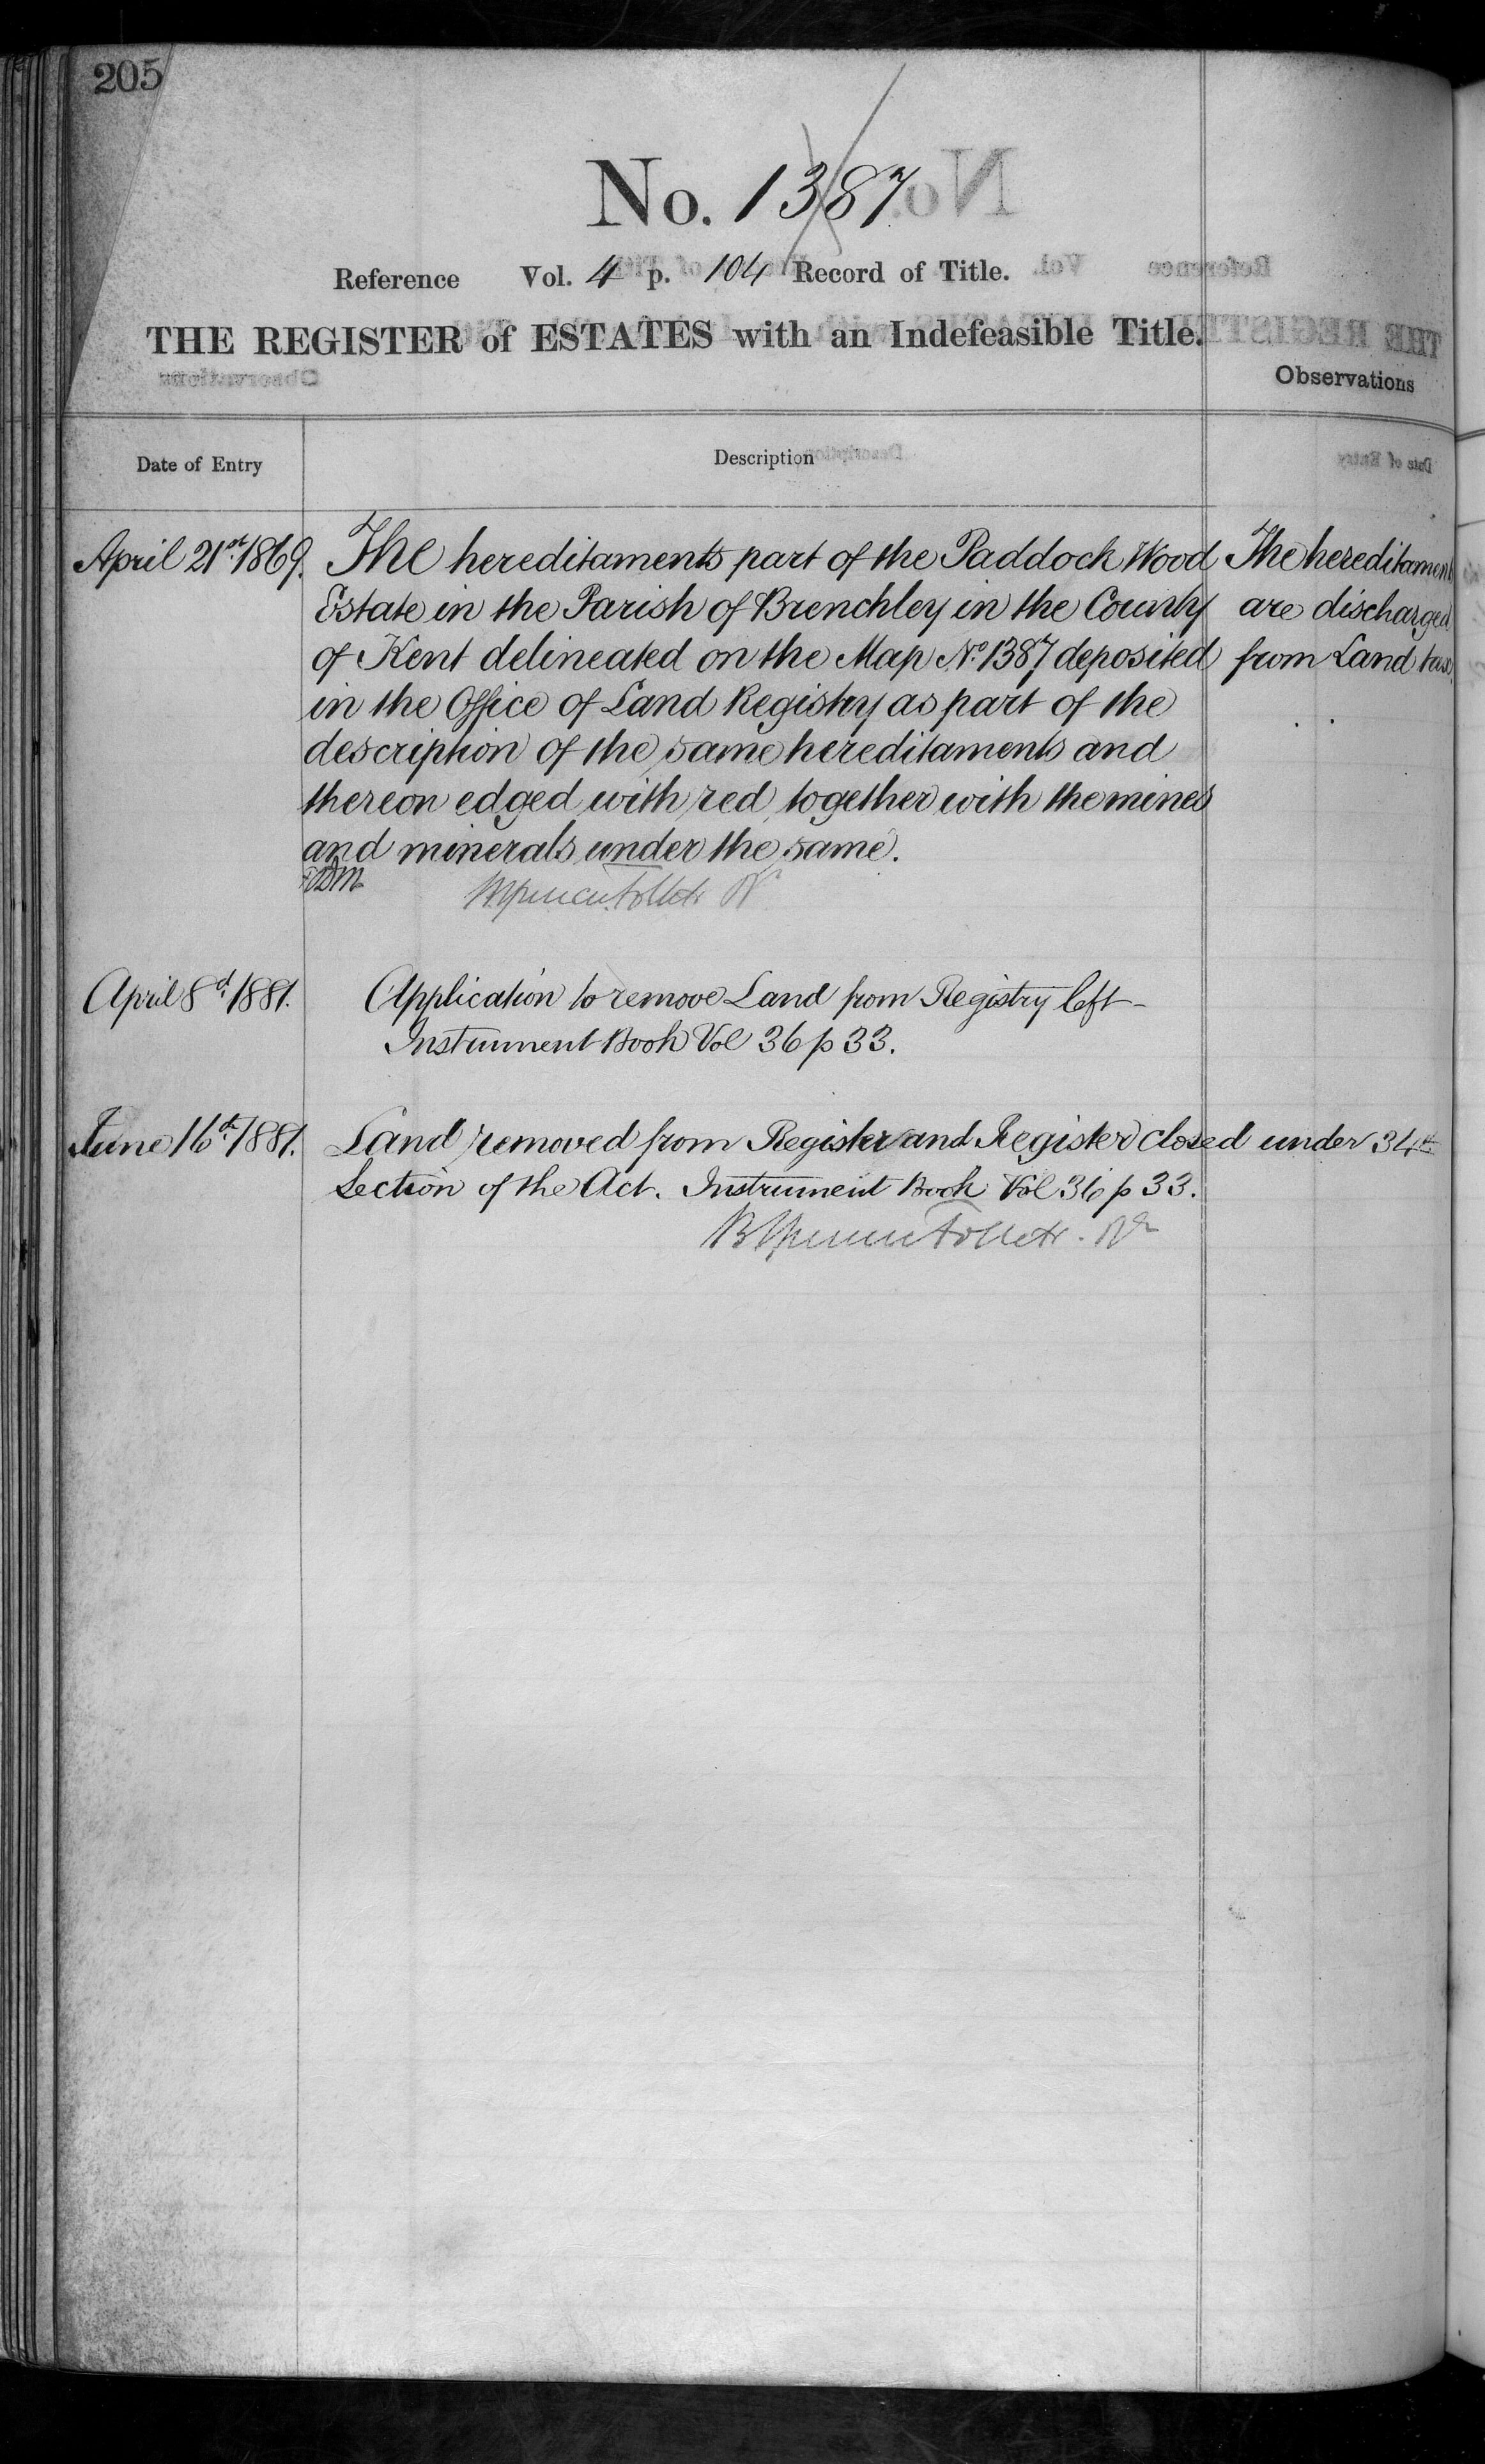 205
No. 1387
Reference Vol. 4 p. 104 Record of Title.
THE REGISTER of ESTATES with an Indefeasible Title.
Observations
Date of Entry Description
April 21st 1869. The hereditaments part of the Paddock Wood The hereditaments
Estate in the Parish of Brenchley in the County are discharged
of Kent delineated on the Map No. 1387 deposited from Land tax
in the Office of Land Registry as part of the
description of the same hereditaments and
thereon edged with red, together with the mines
and minerals under the same.
Follett
April 8th 1881. Application to remove Land from Registry left
Instrument Book Vol 36 p 33.
June 16th 1881. Land removed from Register and Register closed under 34th
Section of the Act. Instrument Book Vol 36 p 33.
Follett